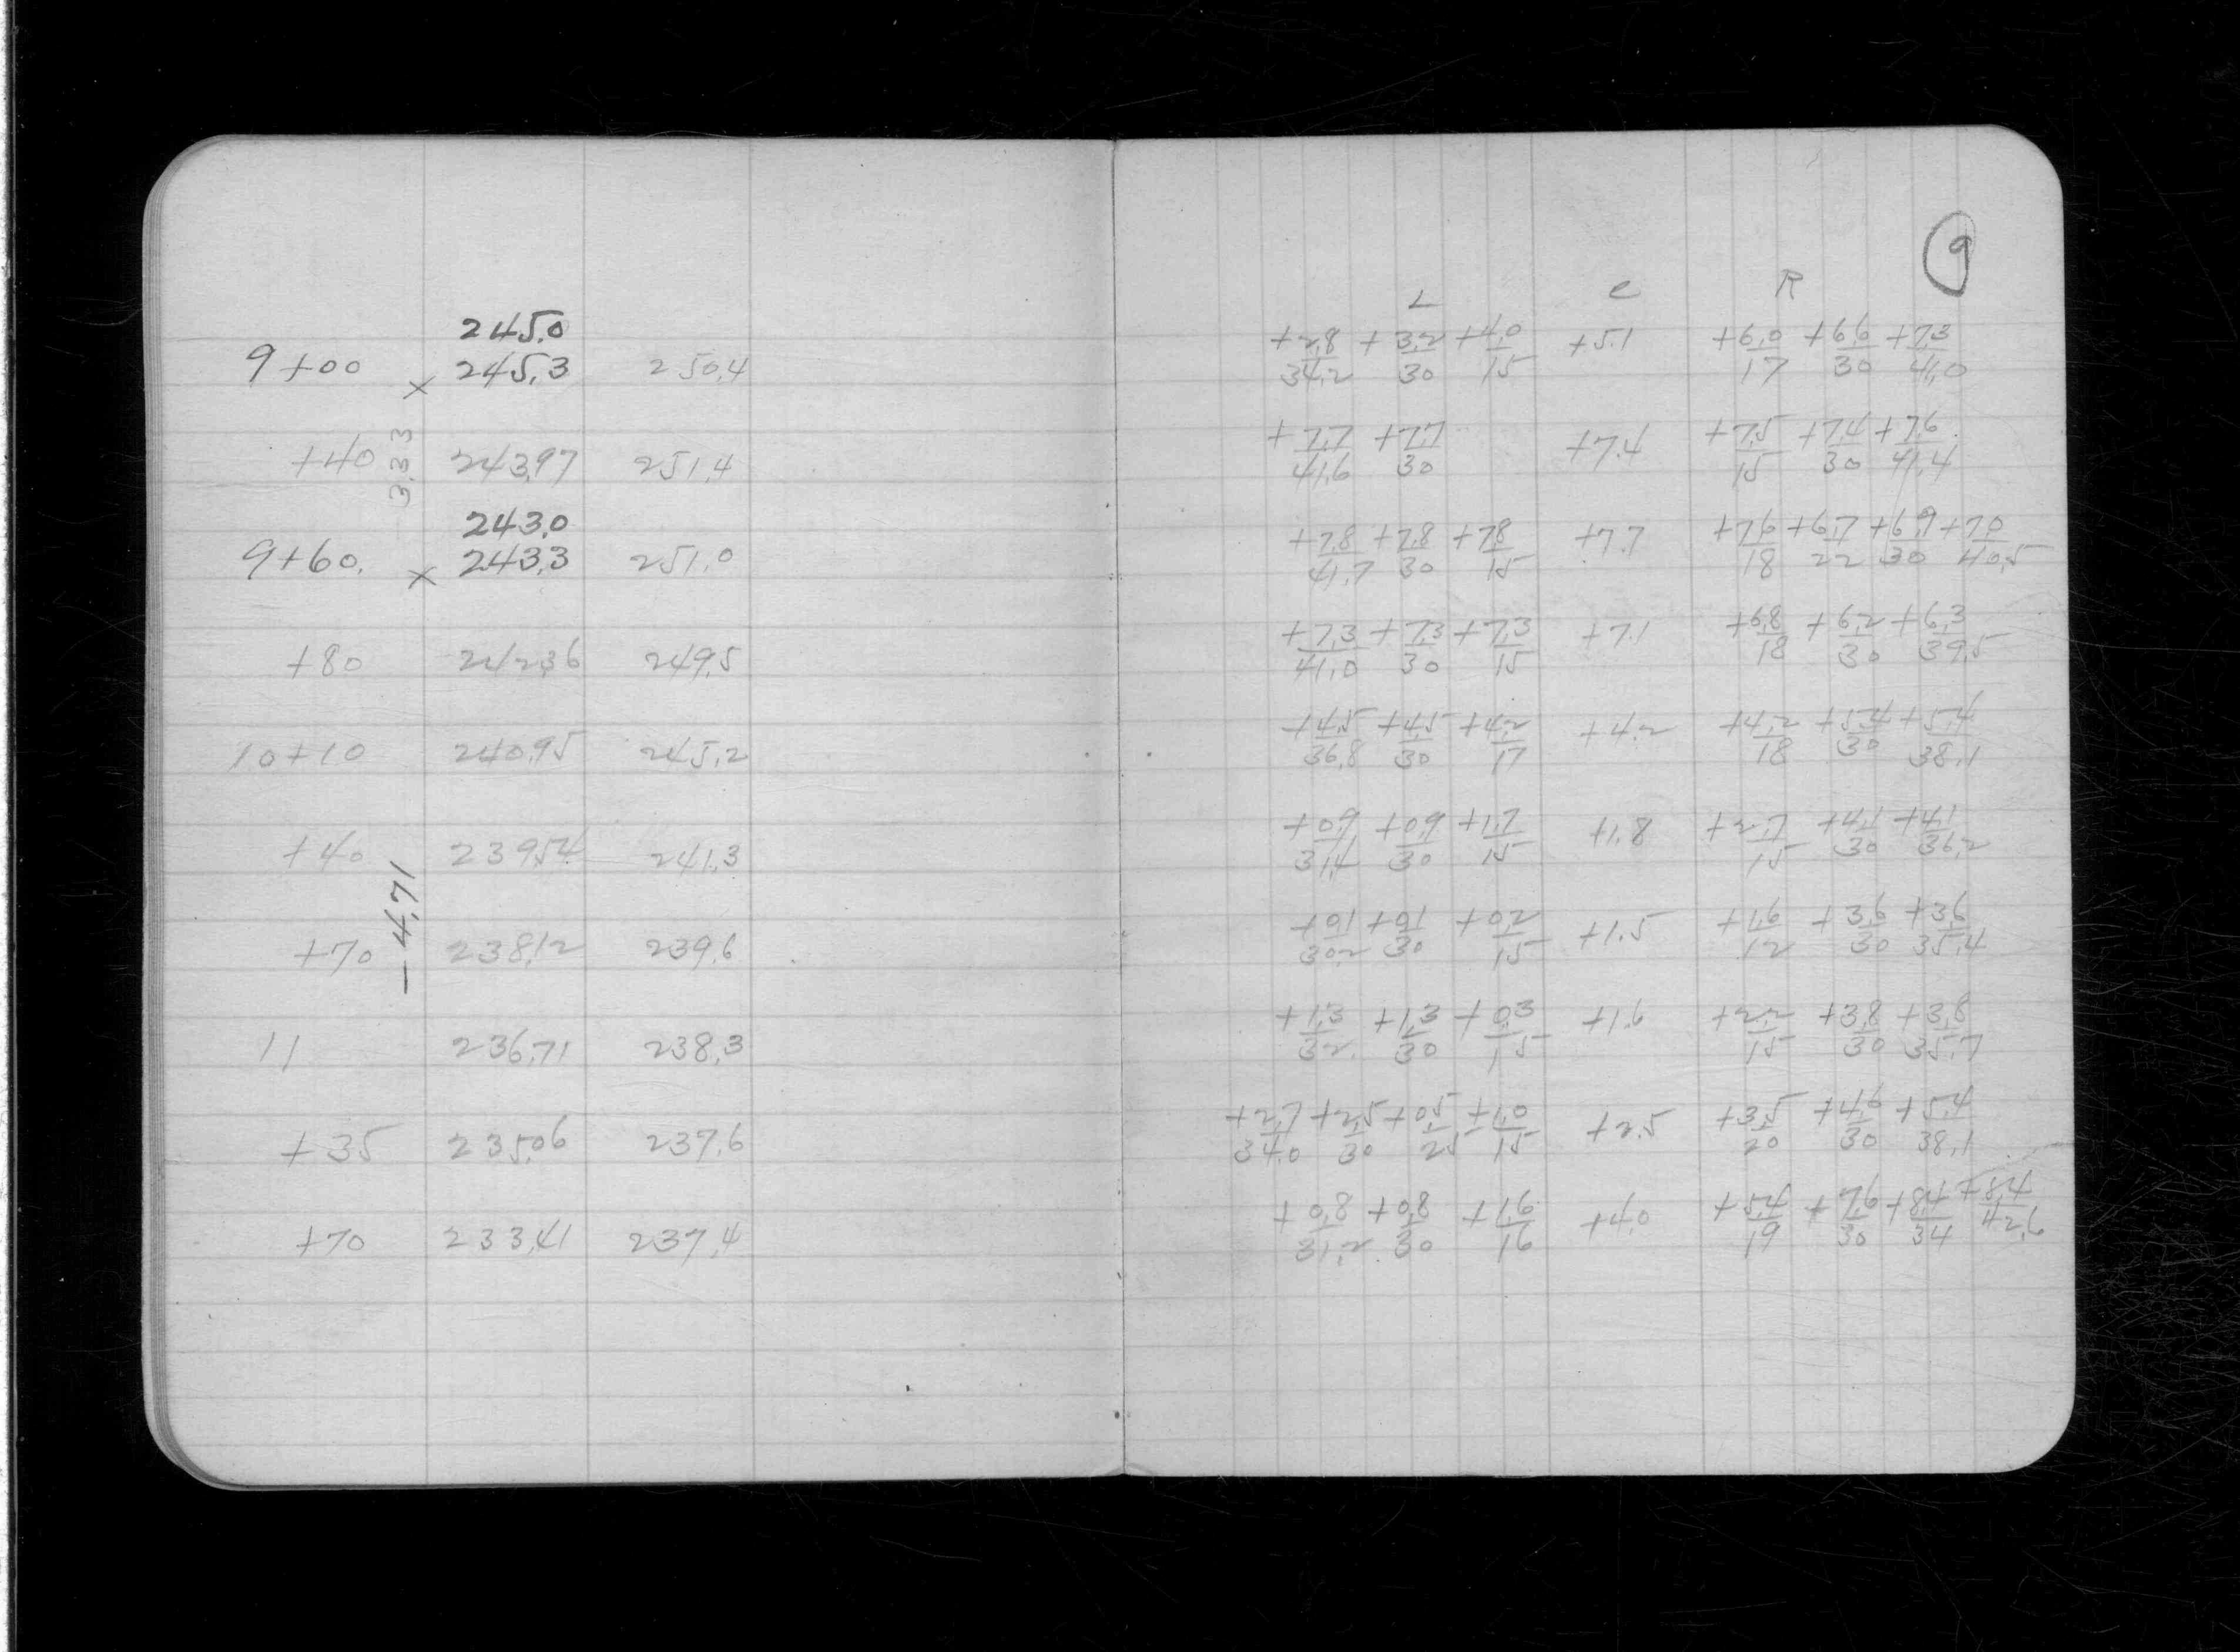 9
L C R
245.0
9+00 x 245.3 250.4 +2.8/34.2 +3.2/30 +4.0/15 +5.1 +6.0/17 +6.6/30 +7.3/41.0
3.33
+40 243.97 251.4 +7.7/41.6 +7.7/30 +7.4 +7.5/15 +7.4/30 +7.6/41.4
243.0
9+60. x 243.3 251.0 +7.8/41.7 +7.8/30 +7.8/15 +7.7 +7.6/18 +6.7/22 +6.9/30 +7.0/40.5
+80 242.36 249.5 +7.3/41.0 +7.3/30 +7.3/15 +7.1 +6.8/18 +6.2/30 +6.3/39.5
10+10 240.95 245.2 +4.5/36.8 +4.5/30 +4.2/17 +4.2 +4.2/18 +5.4/30 +5.4/38.1
+40 239.54 241.3 +0.9/31.4 +0.9/30 +1.7/15 +1.8 +2.7/15 +4.1/30 +4.1/36.2
-4.71
+70 238.12 239.6 +0.1/30.2 +0.1/30 +0.2/15 +1.5 +1.6/12 +3.6/30 +3.6/35.4
11 236.71 238.3 +1.3/32. +1.3/30 +0.3/15 +1.6 +2.2/15 +3.8/30 +3.8/35.7
+35 235.06 237.6 +2.7/34.0 +2.5/30 +0.5/25 +1.0/15 +2.5 +3.5/20 +4.6/30 +5.4/38.1
+70 233.41 237.4 +0.8/31.2 +0.8/30 +1.6/16 +4.0 +5.4/19 +7.6/30 +8.4/34 +8.4/42.6